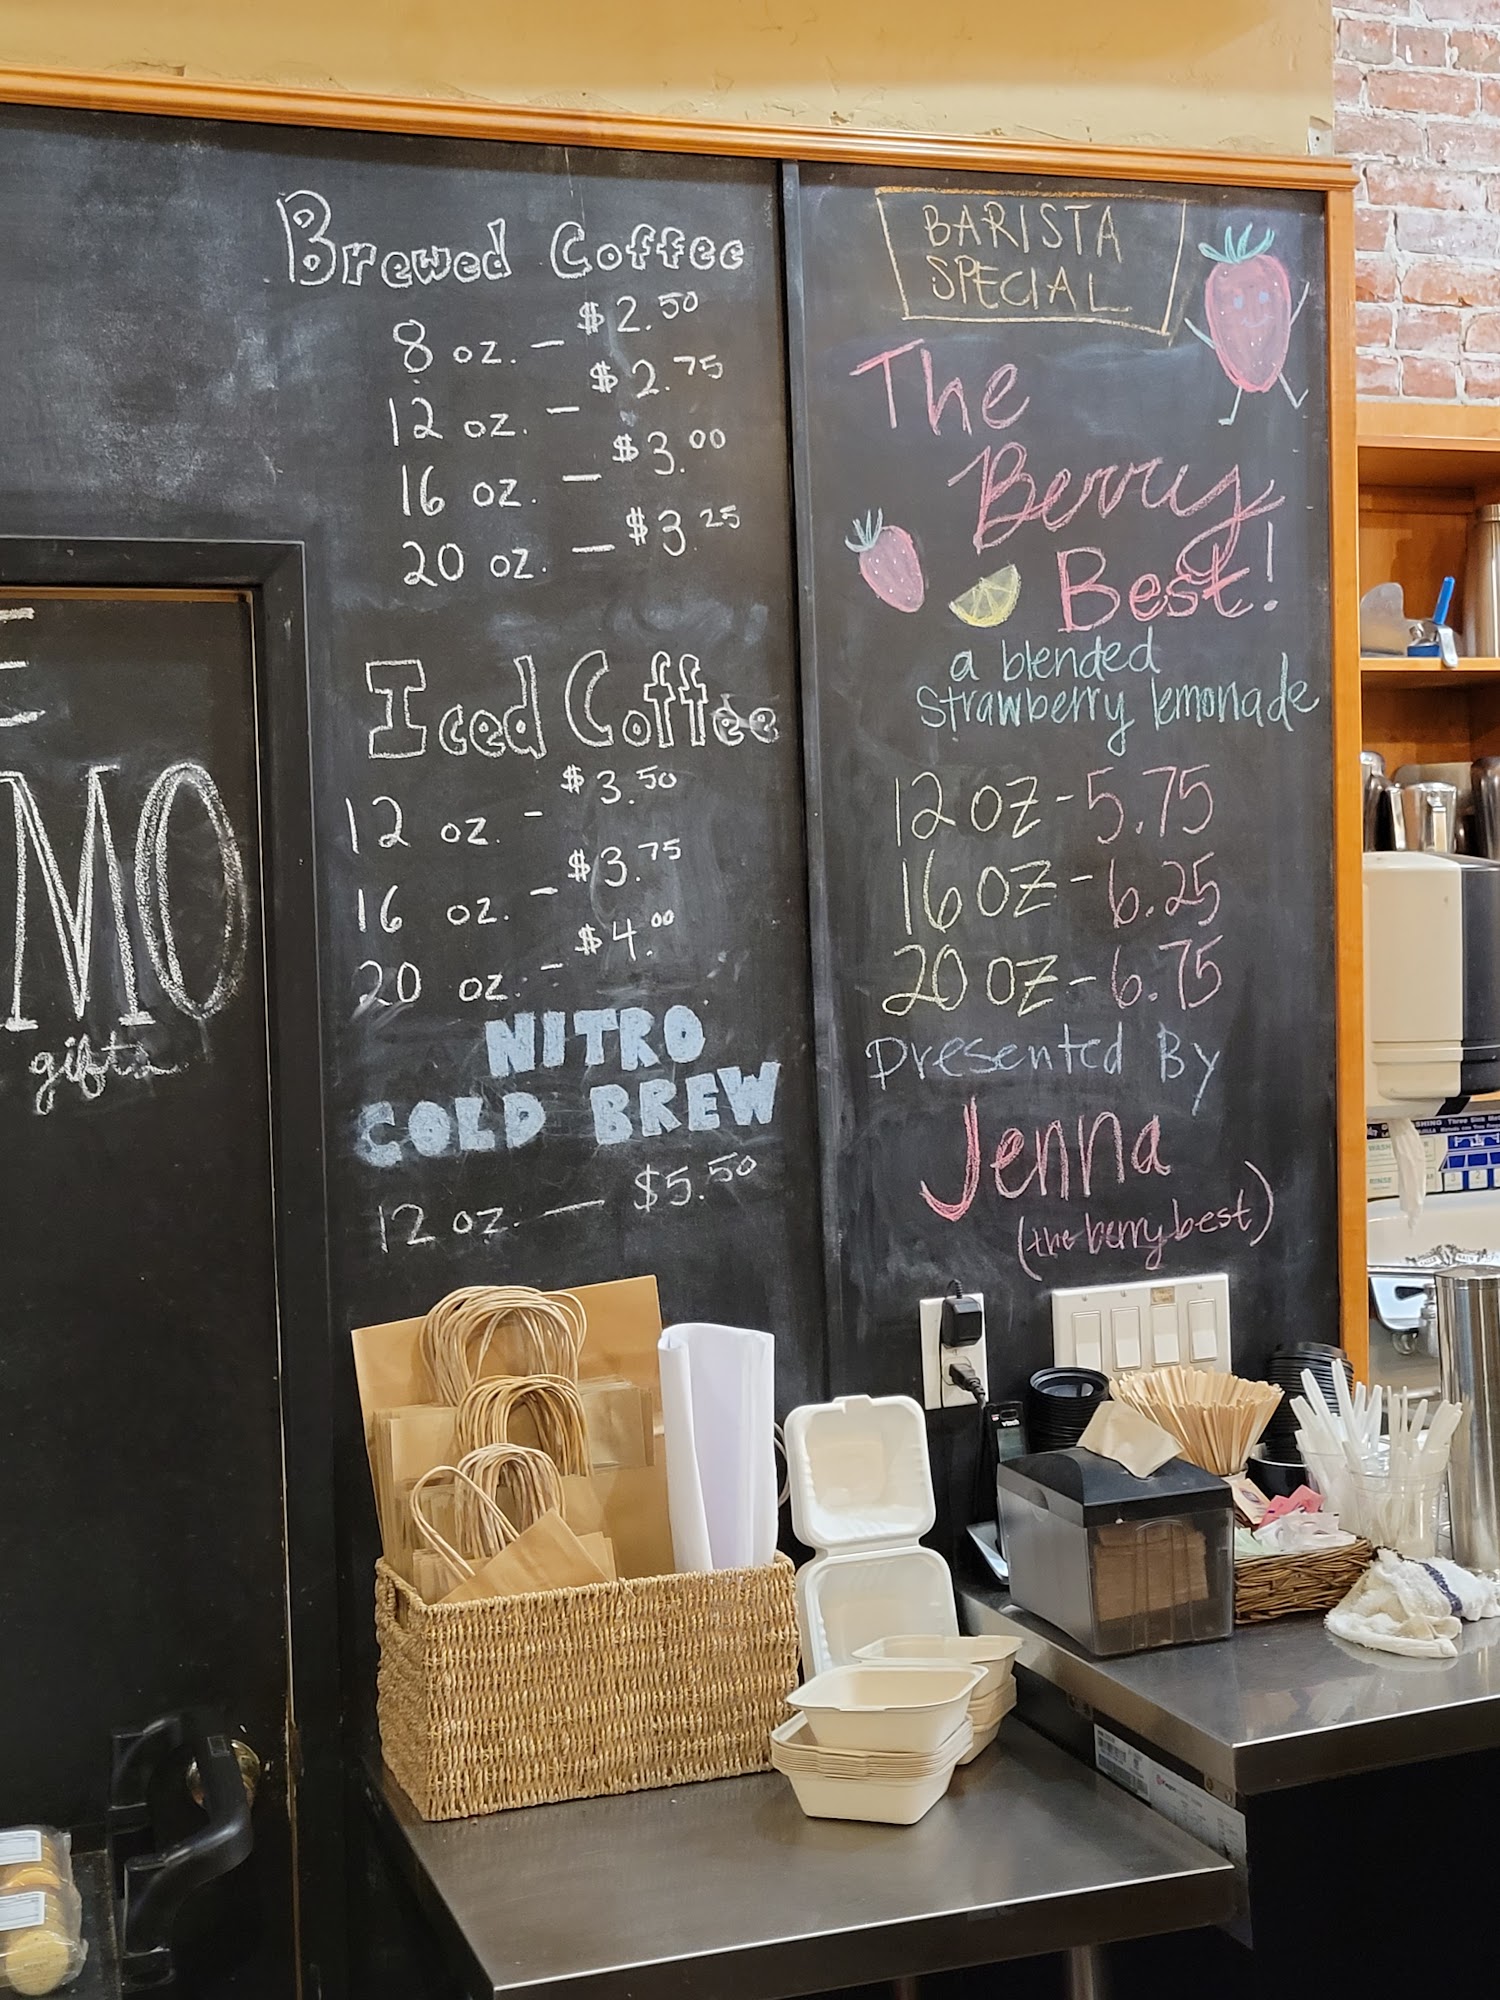 Brewed Coffee
8 oz. — $2.50
12 oz. — $2.75
16 oz. — $3.00
20 oz. — $3.25
Iced Coffee
12 oz. - $3.50
16 oz. - $3.75
20 oz. - $4.00
NITRO
COLD BREW
12 oz. — $5.50
MO
gifts
BARISTA
SPECIAL
The
Berry
Best!
a blended
strawberry lemonade
12 oz - 5.75
16 oz - 6.25
20 oz - 6.75
Presented By
Jenna
(the berry best)